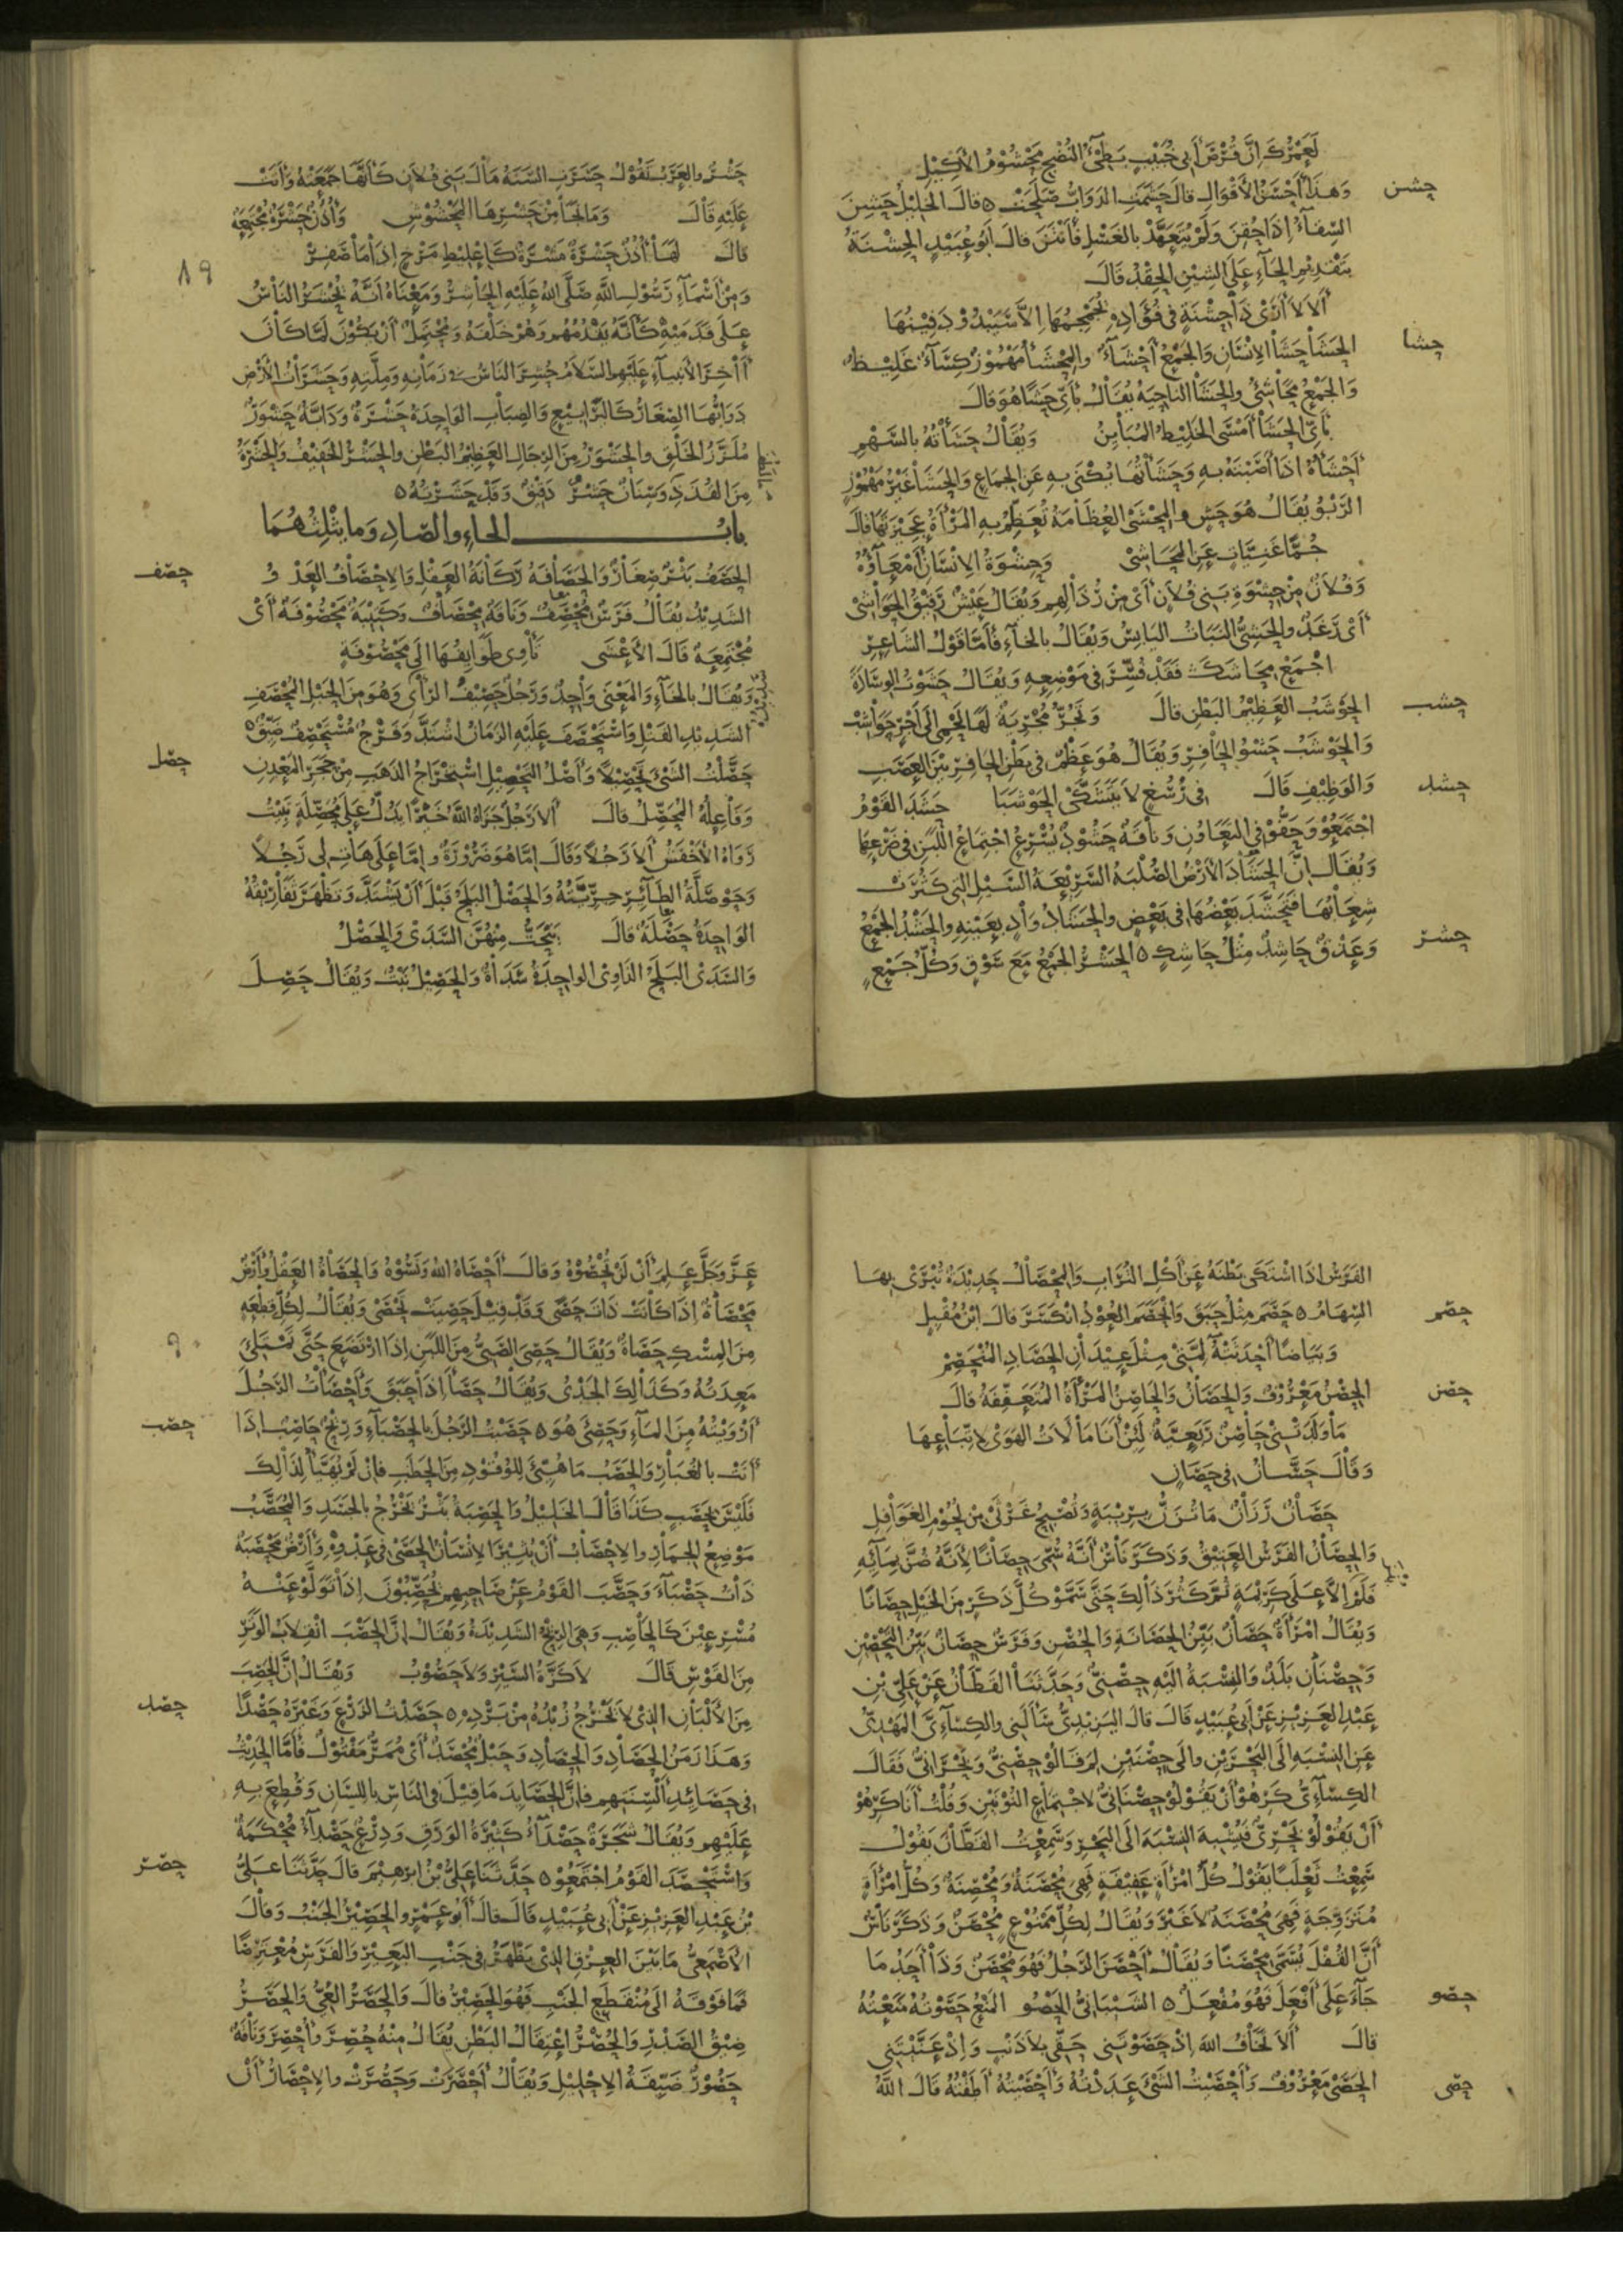 لَعَمْرُكَ إِنَّ قُرْصَ أَبِي خُبَيْبٍ بَطِيءُ النُّضْجِ مَحْشُومُ الأَكِيلِ
حشن
وَهَذَا أَحْسَنُ الأَقْوَالِ قالَ حَشَمَتِ الدَّوَابُّ صَلَحَتْ ٥ قالَ الخَلِيلُ حَشِنَ
السِّقَاءُ إِذَا حُقِنَ وَلَمْ يُتَعَهَّدْ بالغَسْلِ فَأَنْتَنَ قالَ أَبُو عُبَيْدٍ الحِشْنَةُ
بتَقْدِيْمِ الحَاءِ عَلَى الشِّيْنِ الحِقْدُ قَالَ
أَلاَ لاَ أَرَى ذَا حِشْنَةٍ فِي فُؤَادِهِ يُجَمْجِمُهَا إِلاَّ سَيَبْدُوْ دَفِيْنُهَا
حشا
الحَشَا حَشَا الإِنْسَانِ وَالجَمْعُ أَحْشَآءٌ وَالمِحْشَأُ مَهْمُوْزٌ كِسَآءٌ غَلِيْظٌ
وَالجَمْعُ مَحَاشِئُ والحَشَا النَّاحِيَةُ يُقَالُ بِأَيِّ حَشًا هُوَ قالَ
بِأَيِّ الحَشَا أَمْسَى الخَلِيْطُ المُبَايِنُ وَيُقَالُ حَشَأْتُهُ بالسَّهْمِ
أَحْشَأُهُ إِذَا أَصَبْتَهُ بِهِ وَحَشَأْتُهَا يُكْنَى بِهِ عَنِ الجِمَاعِ وَالحَشَا غَيْرُ مَهْمُوْزٍ
الرَّبْوُ يُقَالُ هُوَ حَشٍ والمِحْشَى العُظَّامَةُ تُعَظِّمُ بِهِ المَرْأَةُ عَجِيْزَتَهَا قالَ
جُمًّا غَنِيَّاتٍ عَنِ المَحَاشِيْ وَحِشْوَةُ الإِنْسَانِ أَمْعَآؤُهُ
وَفُلاَنٌ مِنْ حِشْوَةِ بَنِي فُلاَنٍ أَيْ مِنْ رُذَالِهِمْ وَيُقَالُ عَيْشٌ رَقِيْقُ الحَوَاشِيْ
أَيْ رَغَدٌ والحَشِيُّ النَّبَاتُ اليَابِسُ وَيُقَالُ بالخَآءِ فَأَمَّا قَوْلُ الشَّاعِرِ
اجْمَعْ مِحَاشَكَ فَقَدْ فُسِّرَ فِي مَوْضِعِهِ وَيُقَالُ حَشَوْتُ الوِسَادَةَ
حشب
الحَوْشَبُ العَظِيْمُ البَطْنِ قالَ وَتَجُرُّ مُجْرِيَةٌ لَهَا لَحْمِي إِلَى أَجْرٍ حَوَاشِبْ
وَالحَوْشَبُ حَشْوُ الحَافِرِ وَيُقَالُ هُوَ عَظْمٌ فِي بَطْنِ الحَافِرِ بَيْنَ العَصَبِ
حشد
وَالوَظِيْفِ قَالَ فِي رُسُغٍ لاَ يَتَشَكَّى الحَوْشَبَا حَشَدَ القَوْمُ
اجْتَمَعُوْا وَحَفُّوْا فِي التَّعَاوُنِ وَنَاقَةٌ حَشُوْدٌ يُسْرِعُ اجْتِمَاعُ اللَّبَنِ فِي ضَرْعِهَا
وَيُقَالُ إِنَّ الحَشَادَ الأَرْضُ الصُّلْبَةُ السَّرِيْعَةُ السَّيْلِ الَّتِي كَثُرَتْ
شِعَابُهَا فَتَحَشَّدَ بَعْضُهَا فِي بَعْضٍ والحَشَادُ وَادٍ بِعَيْنِهِ والحَشْدُ الجَمْعُ
حشر
وَعَذْقٌ حَاشِدٌ مِثْلُ حَاشِكٍ ٥ الحَشْرُ الجَمْعُ مَعَ سَوْقٍ وَكُلُّ جَمْعٍ
حَشْرٌ والعَرَبُ تَقُوْلُ حَشَرَتِ السَّنَةُ مَالَ بَنِي فُلاَنٍ كَأَنَّهَا جَمَعَتْهُ وَأَتَتْ
عَلَيْهِ قَالَ وَمَا نَجَا مِنْ حَشْرِهَا المَحْشُوْشِ وَأُذُنٌ حَشْرَةٌ مُجْتَمِعَةٌ
قالَ لَهَا أُذُنٌ حَشْرَةٌ مَشْرَةٌ كَإِعْلِيْطِ مَرْخٍ إِذَا مَا صَفِرْ
١٩
وَمِنْ أَسْمَآءِ رَسُوْلِ اللَّهِ صَلَّى اللهُ عَلَيْهِ الحَاشِرُ وَمَعْنَاهُ أَنَّهُ يَحْشُرُ النَّاسَ
عَلَى قَدَمَيْهِ كَأَنَّهُ يَقْدُمُهُمْ وَهُمْ خَلْفَهُ وَيُحْتَمَلُ أَنْ يَكُوْنَ لَمَّا كَانَ
آخِرَ الأَنْبِيَآءِ عَلَيْهِمُ السَّلاَمُ حُشِرَ النَّاسُ فِي زَمَانِهِ وَمِلَّتِهِ وَحَشَرَاتُ الأَرْضِ
دَوَابُّهَا الصِّغَارُ كَاليَرَابِيْعِ وَالضِّبَابِ الوَاحِدَةُ حَشَرَةٌ وَدَابَّةٌ حَشْوَرٌ
مُلَزَّزُ الخَلْقِ والحَشْوَرُ مِنَ الرِّجَالِ العَظِيْمُ البَطْنِ والحَشْرُ الخَفِيْفُ والحَشْرَةُ
مِنَ القُذَذِ وَسِنَانٌ حَشْرٌ دَقِيْقٌ وَقَدْ حَشَرْتُهُ ٥
بابُ الحاءِ والصّادِ وَمَا يَثْلِثُهُمَا
حصف
الحَصَفُ بَثْرٌ صِغَارٌ وَالحَصَافَةُ رَكَانَةُ العَقْلِ وَالإِحْصَافُ العَدْوُ
الشَّدِيْدُ يُقَالُ فَرَسٌ مُحْصِفٌ وَنَاقَةٌ مِحْصَافٌ وَكَتِيْبَةٌ مَحْصُوْفَةٌ أَيْ
مُجْتَمِعَةٌ قَالَ الأَعْشَى تَأْوِي طَوَايِفُهَا إِلَى مَحْصُوْفَةٍ
وَيُقَالُ بالخَآءِ وَالمَعْنَى وَاحِدٌ وَرَجُلٌ حَصِيْفُ الرَّأْيِ وَهُوَ مِنَ الحَبْلِ المُحْصَفِ
الشَّدِيْدِ الفَتْلِ وَاسْتَحْصَفَ عَلَيْهِ الزَّمَانُ اشْتَدَّ وَفَرْجٌ مُسْتَحْصِفٌ ضَيِّقٌ ٥
حصل
حَصَّلْتُ الشَّيْءَ تَحْصِيْلاً وَأَصْلُ التَّحْصِيْلِ اسْتِخْرَاجُ الذَّهَبِ مِنْ حَجَرِ المَعْدِنِ
وَفَاعِلُهُ المُحَصِّلُ قالَ أَلاَ رَجُلٌ جَزَاهُ اللَّهُ خَيْرًا يَدُلُّ عَلَى مُحَصِّلَةٍ تَبِيْتُ
رَوَاهُ الأَخْفَشُ أَلاَ رَجُلاً وَقَالَ إِمَّا هُوَ ضَرُوْرَةٌ وإِمَّا عَلَى هَاتِ لِي رَجُلاً
وَحَوْصَلَّةُ الطَّآئِرِ حِرِّيَّتُهُ وَالحَصْلُ البَلَحُ قَبْلَ أَنْ يَشْتَدَّ وَتَظْهَرَ ثَفَارِيْقُهُ
الوَاحِدَةُ حَصْلَةٌ قَالَ يَنْحَتُّ مِنْهُنَّ السَّدَى وَالحَصْلُ
وَالسَّدَى البَلَحُ الذَّاوِي الوَاحِدَةُ سَدَاةٌ وَالحَصِيْلُ نَبْتٌ وَيُقَالُ حَصِلَ
الفَرَسُ إِذَا اشْتَكَى بَطْنَهُ عَنْ أَكْلِ التُّرَابِ وَالمِحْصَالُ حَدِيْدَةٌ تُبْرَى بِهَا
حصم
السِّهَامُ ٥ حَصَمَ مِثْلُ حَبَقَ وَانْحَصَمَ العُوْدُ انْكَسَرَ قالَ ابْنُ مُقْبِلٍ
وَبَيَاضًا أَحْدَثَتْهُ لِمَّتِي مِثْلَ عِيْدَانِ الحَصَادِ المُنْحَصِمْ
حصن
الحِصْنُ مَعْرُوْفٌ وَالحَصَانُ وَالحَاصِنُ المَرْأَةُ المُتَعَفِّفَةُ قالَ
مَا وَلَدَتْنِيْ حَاصِنٌ رَبَعِيَّةٌ لَئِنْ أَنَا مَالأْتُ الهَوَى لاِتِّبَاعِهَا
وَقَالَ حَسَّانُ فِي حَصَانٍ
حَصَانٌ رَزَانٌ مَا تُزَنُّ بِرِيْبَةٍ وَتُصْبِحُ غَرْثَى مِنْ لُحُوْمِ الغَوَافِلِ
وَالحِصَانُ الفَرَسُ العَتِيْقُ وَذَكَرَ نَاسٌ أَنَّهُ سُمِّيَ حِصَانًا لأَنَّهُ ضُنَّ بِمَآئِهِ
فَلَمْ إِلاَّ عَلَى كَرِيْمَةٍ ثُمَّ كَثُرَ ذَالِكَ حَتَّى سَمَّوْا كُلَّ ذَكَرٍ مِنَ الخَيْلِ حِصَانًا
وَيُقَالُ امْرَأَةٌ حَصَانٌ بَيِّنُ الحَصَانَةِ وَالحُصْنِ وَفَرَسٌ حِصَانٌ بَيِّنُ التَّحْصِيْنِ
وَحِصْنَانِ بَلَدٌ وَالنِّسْبَةُ إِلَيْهِ حِصْنِيٌّ وَحَدَّثَنَا القَطَّانُ عَنْ عَلِيِّ بْنِ
عَبْدِ العَزِيْزِ عَنْ أَبِي عُبَيْدٍ قَالَ قالَ اليَزِيْدِيُّ سَأَلَنِي والكِسَآئِيَّ المَهْدِيُّ
عَنِ النِّسْبَةِ إِلَى البَحْرَيْنِ وإِلَى حِصْنَيْنِ لِمَ قَالُوْا حِصْنِيٌّ وَبَحْرَانِيٌّ فَقَالَ
الكِسَآئِيُّ كَرِهُوْا أَنْ يَقُوْلُوْا حِصْنَانِيٌّ لاجْتِمَاعِ النُّوْنَيْنِ وَقُلْتُ أَنَا كَرِهُوْا
أَنْ يَقُوْلُوْا بَحْرِيٌّ فَتُشْبِهَ النِّسْبَةَ إِلَى البَحْرِ وَسَمِعْتُ القَطَّانَ يَقُوْلُ
سَمِعْتُ ثَعْلَبًا يَقُوْلُ كُلُّ امْرَأَةٍ عَفِيْفَةٍ فَهِيَ مُحْصَنَةٌ وَمُحْصِنَةٌ وَكُلُّ امْرَأَةٍ
مُتَزَوِّجَةٍ فَهِيَ مُحْصَنَةٌ لاَ غَيْرُ وَيُقَالُ لِكُلِّ مَمْنُوْعٍ مُحْصَنٌ وَذَكَرَ نَاسٌ
أَنَّ القُفْلَ يُسَمَّى مِحْصَنًا وَيُقَالُ أَحْصَنَ الرَّجُلُ فَهُوَ مُحْصَنٌ وَذَا أَحَدُ مَا
حصو
جَآءَ عَلَى أَفْعَلَ فَهُوَ مُفْعَلٌ ٥ الشَّيْبَانِيُّ الحَصْو المَنْعُ حَصَوْتُهُ مَنَعْتُهُ
قالَ أَلاَ تَخَافُ اللهَ إِذْ حَصَوْتَنِي حَقِّي بِلاَ ذَنْبٍ وَإِذْ عَنَّيْتَنِي
حصى
الحَصَى مَعْرُوْفٌ وَأَحْصَيْتُ الشَّيْءَ عَدَدْتُهُ وَأَحْصَيْتُهُ أَطَقْتُهُ قَالَ اللَّهُ
عَزَّ وَجَلَّ عَلِمَ أَنْ لَنْ تُحْصُوْهُ وَقالَ أَحْصَاهُ اللهُ وَنَسُوْهُ وَالحَصَاةُ العَقْلُ وَأَرْضٌ
مَحْصَاةٌ إِذَا كَانَتْ ذَاتَ حَصًى وَقَدْ قِيْلَ حَصِيَتْ تَحْصَى وَيُقَالُ لِكُلِّ قِطْعَةٍ
مِنَ المِسْكِ حَصَاةٌ وَيُقَالُ حَصِئَ الصَّبِيُّ مِنَ اللَّبَنِ إِذَا ارْتَضَعَ حَتَّى تَمْتَلِئَ
مَعِدَتُهُ وَكَذَالِكَ الجَدْيُ وَيُقَالُ حَصَأَ إِذَا حَبَقَ وَأَحْصَأْتُ الرَّجُلَ
حصب
أَرْوَيْتُهُ مِنَ المَآءِ وَحَصِئَ هُوَ ٥ حَصَبْتُ الرَّجُلَ بالحَصْبَآءِ وَرِيْحٌ حَاصِبٌ إِذَا
أَتَتْ بالغُبَارِ وَالحَصَبُ مَا هُيِّئَ لِلْوُقُوْدِ مِنَ الحَطَبِ فَإِنْ لَمْ يُهَيَّأْ لِذَالِكَ
فَلَيْسَ بِحَصَبٍ كَذَا قَالَ الخَلِيْلُ وَالحَصْبَةُ بَثْرٌ تَخْرُجُ بالجَسَدِ وَالمُحَصَّبُ
مَوْضِعُ الجِمَارِ والإِحْصَابُ أَنْ يُثِيْرَ الإِنْسَانُ الحَصَى فِي عَدْوِهِ وَأَرْضٌ مَحْصَبَةٌ
ذَاتُ حَصْبَآءَ وَحَصَّبَ القَوْمُ عَنْ صَاحِبِهِمْ يُحَصِّبُوْنَ إِذَا تَوَلَّوْا عَنْهُ
مُسْرِعِيْنَ كَالحَاصِبِ وَهِيَ الرِّيْحُ الشَّدِيْدَةُ وَيُقَالُ إِنَّ الحَصْبَ انْقِلاَبُ الوَتَرِ
مِنَ القَوْسِ قَالَ لاَ كَزَّةُ السَّيْرِ وَلاَ حَصُوْبُ وَيُقَالُ إِنَّ الحَصِبَ
حصد
مِنَ الأَلْبَانِ الَّذِيْ لاَ تَخْرُجُ زُبْدُهُ مِنْ بَرْدِهِ ٥ حَصَدْتُ الزَّرْعَ وَغَيْرَهُ حَصْدًا
وَهَذَا زَمَنُ الحَصَادِ وَالحِصَادِ وَحَبْلٌ مُحْصَدٌ أَيْ مُمَرٌّ مَفْتُوْلٌ فَأَمَّا الحَدِيْثُ
فِي حَصَائِدِ أَلْسِنَتِهِمْ فَإِنَّ الحَصَايِدَ مَا قِيْلَ فِي النَّاسِ باللِّسَانِ وَقُطِعَ بِهِ
عَلَيْهِمْ وَيُقَالُ شَجَرَةٌ حَصْدَآءُ كَثِيْرَةُ الوَرَقِ وَدِرْعٌ حَصْدَآءُ مُحْكَمَةٌ
حصر
وَاسْتَحْصَدَ القَوْمُ اجْتَمَعُوْا ٥ حَدَّثَنَا عَلِيُّ بْنُ إِبْرَهِيْمَ قالَ حَدَّثَنَا عَلِيُّ
بْنُ عَبْدِ العَزِيْزِ عَنْ أَبِي عُبَيْدٍ قَالَ قالَ أَبُو عَمْرٍو الحَصِيْرُ الجَنْبُ وَقَالَ
الأَصْمَعِيُّ مَا بَيْنَ العِرْقِ الَّذِيْ يَظْهَرُ فِي جَنْبِ البَعِيْرِ وَالفَرَسِ مُعْتَرِضًا
فَمَا فَوْقَهُ إِلَى مُنْقَطَعِ الجَنْبِ فَهُوَ الحَصِيْرُ قَالَ وَالحَصَرُ العِيُّ وَالحَصَرُ
ضِيْقُ الصَّدْرِ وَالحُصْرُ اعْتِقَالُ البَطْنِ يُقَالُ مِنْهُ حُصِرَ وَأُحْصِرَ وَنَاقَةٌ
حَصُوْرٌ ضَيِّقَةُ الإِحْلِيْلِ وَيُقَالُ أَحْصَرَتْ وَحَصُرَتْ وَالإِحْصَارُ أَنْ